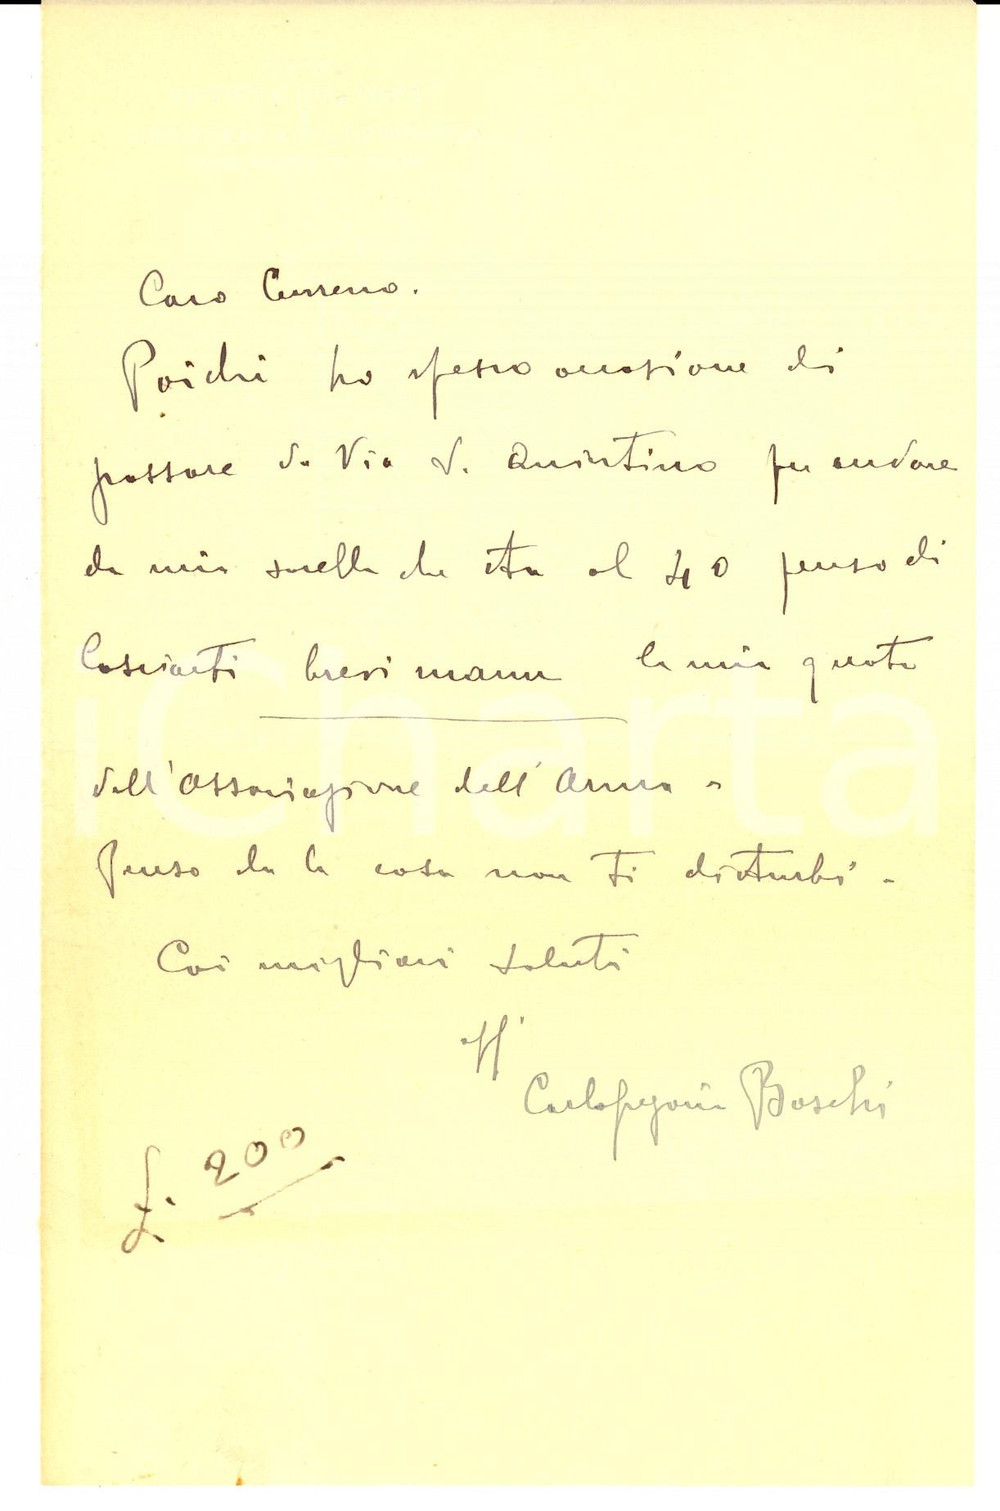 Caro Curreno.
Poichè ho spesso occasione di
passare da Via S. Quintino per andare
da mia sorella che sta al 40 penso di
lasciarti brevi manu la mia quota
dell'Associazione dell'Arma -
Penso che la cosa non ti disturbi -
Coi migliori saluti
aff
Boschi
£. 200
iCharta